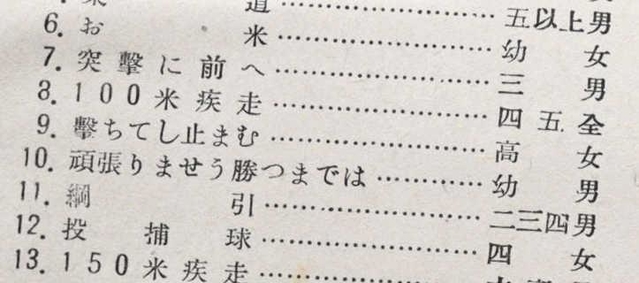 道……五以上男
6. お米……幼女
7. 突擊に前へ……三男
8. 100米疾走……四五全
9. 擊ちてし止まむ……高女
10. 頑張りませう勝つまでは……幼男
11. 綱引……二三四男
12. 投捕球……四女
13. 150米疾走……